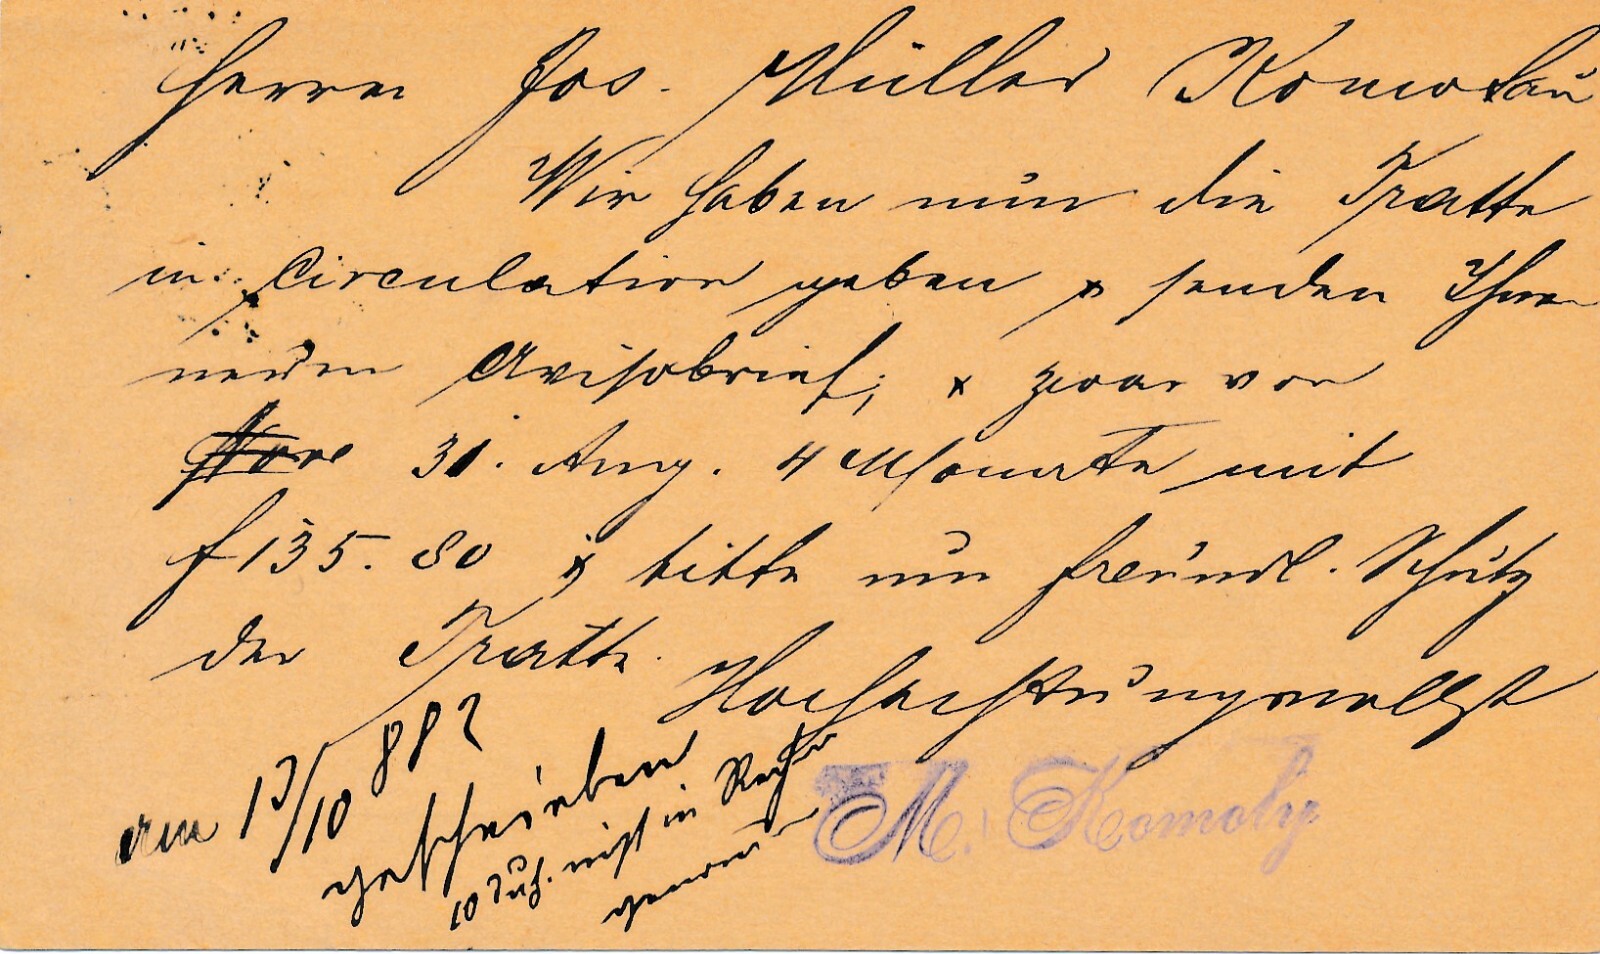 Herrn Jos. Müller Komotau
Wir haben nun die Tratte
in Circulation geben & senden Ihnen
neuen Avisobrief; & zwar von
31. Aug. 4 Monate mit
f 135. 80 & bitte um freundl. Schutz
der Tratte. Hochachtungsvollst
am 13/10 882
geschrieben
10 nicht in
M. Komoly